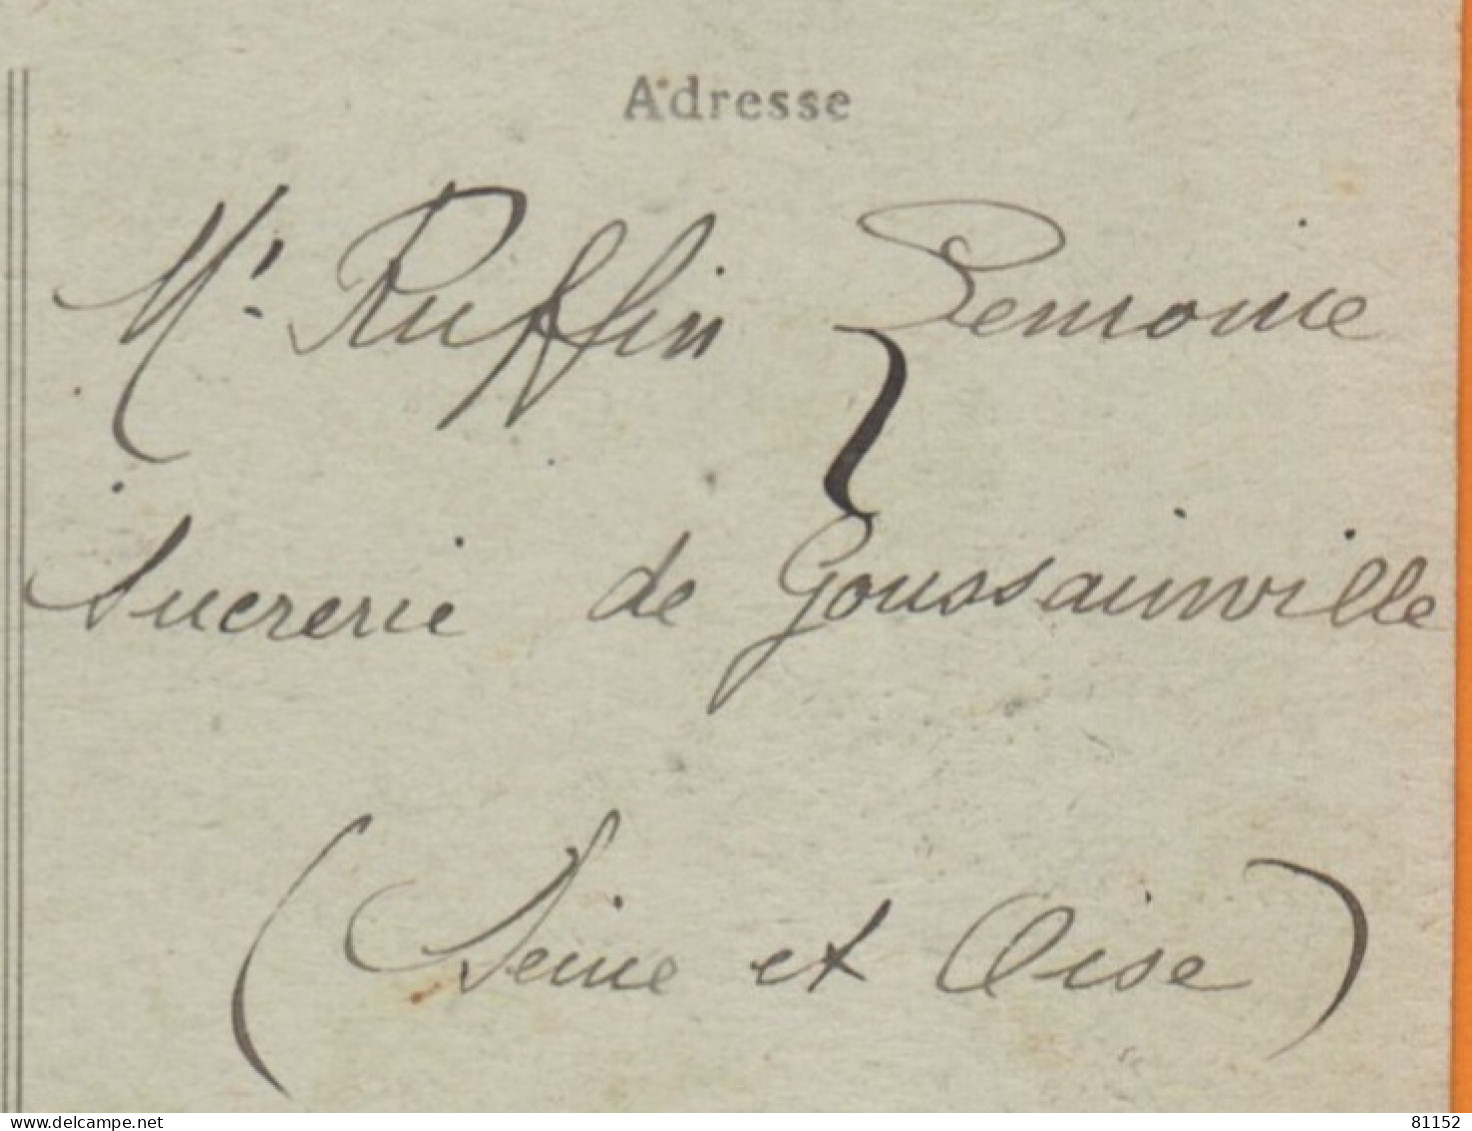 Adresse
Mr Ruffin
Sucrerie de Goussainville
(Seine et Oise)
www.delcampe.net gustave38 81152